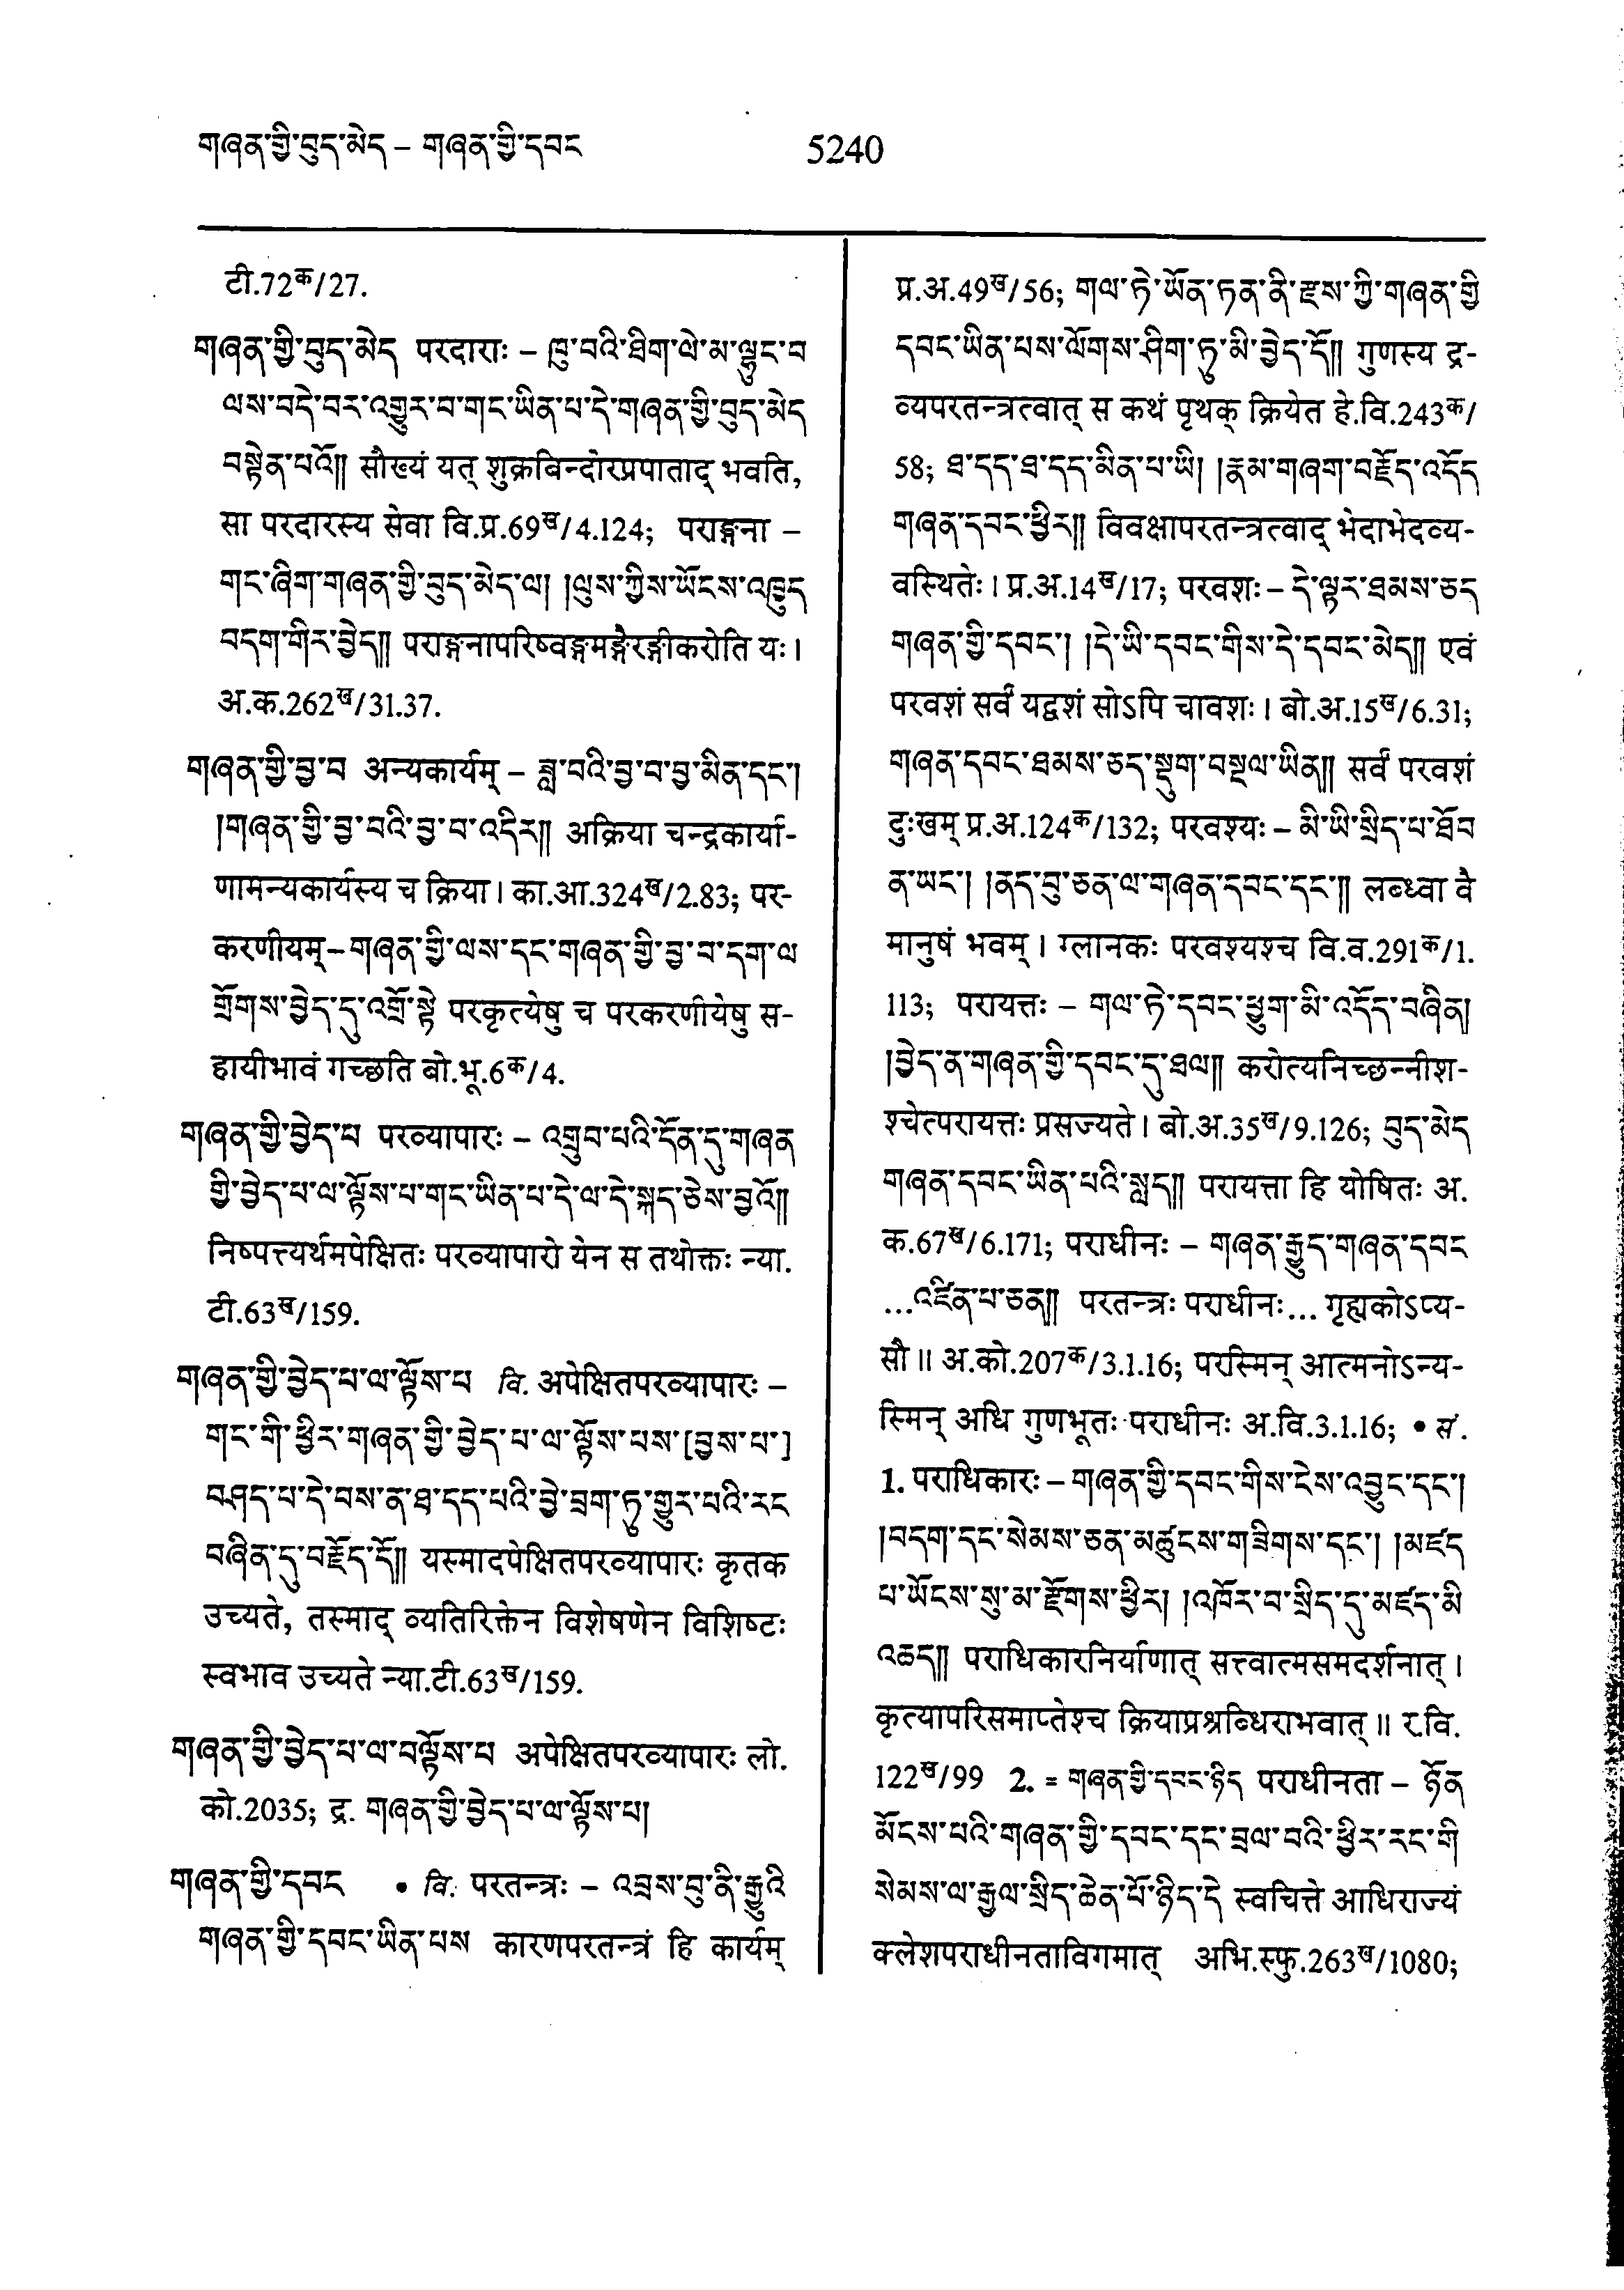 གཞན་གྱི་བུད་མེད – གཞན་གྱི་དབང
5240
टी.72क/27.
གཞན་གྱི་བུད་མེད परदाराः – ཁུ་བའི་ཐིག་ལེ་མ་ལྷུང་བ
ལས་བདེ་བར་འགྱུར་བ་གང་ཡིན་པ་དེ་གཞན་གྱི་བུད་མེད
བསྟེན་པའོ།། सौख्यं यत् शुक्रबिन्दोरप्रपाताद् भवति,
सा परदारस्य सेवा वि.प्र.69ख/4.124; पराङ्गना –
གང་ཞིག་གཞན་གྱི་བུད་མེད་ལ། །ལུས་ཀྱིས་ཡོངས་འཁྱུད
བདག་གིར་བྱེད།། पराङ्गनापरिष्वङ्गमङ्गैरङ्गीकरोति यः ।
अ.क.262ख/31.37.
གཞན་གྱི་བྱ་བ अन्यकार्यम् – ཟླ་བའི་བྱ་བ་བྱ་མིན་དང་།
།གཞན་གྱི་བྱ་བའི་བྱ་བ་འདིར།། अक्रिया चन्द्रकार्या-
णामन्यकार्यस्य च क्रिया । का.आ.324ख/2.83; पर-
करणीयम् – གཞན་གྱི་ལས་དང་གཞན་གྱི་བྱ་བ་དག་ལ
གྲོགས་བྱེད་དུ་འགྲོ་སྟེ परकृत्येषु च परकरणीयेषु स-
हायीभावं गच्छति बो.भू.6क/4.
གཞན་གྱི་བྱེད་པ परव्यापारः – འགྲུབ་པའི་དོན་དུ་གཞན
གྱི་བྱེད་པ་ལ་ལྟོས་པ་གང་ཡིན་པ་དེ་ལ་དེ་སྐད་ཅེས་བྱའོ།།
निष्पत्त्यर्थमपेक्षितः परव्यापारो येन स तथोक्तः न्या.
टी.63ख/159.
གཞན་གྱི་བྱེད་པ་ལ་ལྟོས་པ वि. अपेक्षितपरव्यापारः –
གང་གི་ཕྱིར་གཞན་གྱི་བྱེད་པ་ལ་ལྟོས་པས་[བྱས་པ་]
བཤད་པ་དེ་བས་ན་ཐ་དད་པའི་བྱེ་བྲག་ཏུ་གྱུར་པའི་རང
བཞིན་དུ་བརྗོད་དོ།། यस्मादपेक्षितपरव्यापारः कृतक
उच्यते, तस्माद् व्यतिरिक्तेन विशेषणेन विशिष्टः
स्वभाव उच्यते न्या.टी.63ख/159.
གཞན་གྱི་བྱེད་པ་ལ་བལྟོས་པ अपेक्षितपरव्यापारः लो.
को.2035; द्र. གཞན་གྱི་བྱེད་པ་ལ་ལྟོས་པ།
གཞན་གྱི་དབང • वि. परतन्त्रः – འབྲས་བུ་ནི་རྒྱུའི
གཞན་གྱི་དབང་ཡིན་པས कारणपरतन्त्रं हि कार्यम्
प्र.अ.49ख/56; གལ་ཏེ་ཡོན་ཏན་ནི་རྫས་ཀྱི་གཞན་གྱི
དབང་ཡིན་པས་ལོགས་ཤིག་ཏུ་མི་བྱེད་དོ།། गुणस्य द्र-
व्यपरतन्त्रत्वात् स कथं पृथक् क्रियेत हे.वि.243क/
58; ཐ་དད་ཐ་དད་མིན་པ་ཡི། །རྣམ་གཞག་བརྗོད་འདོད
གཞན་དབང་ཕྱིར།། विवक्षापरतन्त्रत्वाद् भेदाभेदव्य-
वस्थितेः । प्र.अ.14ख/17; परवशः – དེ་ལྟར་ཐམས་ཅད
གཞན་གྱི་དབང་། །དེ་ཡི་དབང་གིས་དེ་དབང་མེད།། एवं
परवशं सर्वं यद्वशं सोऽपि चावशः । बो.अ.15ख/6.31;
གཞན་དབང་ཐམས་ཅད་སྡུག་བསྔལ་ཡིན།། सर्वं परवशं
दुःखम् प्र.अ.124क/132; परवश्यः – མི་ཡི་སྲིད་པ་ཐོབ
ན་ཡང་། །ནད་བུ་ཅན་ལ་གཞན་དབང་དང་།། लब्ध्वा वै
मानुषं भवम् । ग्लानकः परवश्यश्च वि.व.291क/1.
113; परायत्तः – གལ་ཏེ་དབང་ཕྱུག་མི་འདོད་བཞིན།
།བྱེད་ན་གཞན་གྱི་དབང་དུ་ཐལ།། करोत्यनिच्छन्नीश-
श्चेत्परायत्तः प्रसज्यते । बो.अ.35ख/9.126; བུད་མེད
གཞན་དབང་ཡིན་པའི་སླད།། परायत्ता हि योषितः अ.
क.67ख/6.171; पराधीनः – གཞན་རྒྱུད་གཞན་དབང
...འཛིན་པ་ཅན།། परतन्त्रः पराधीनः... गृह्यकोऽप्य-
सौ ॥ अ.को.207क/3.1.16; परस्मिन् आत्मनोऽन्य-
स्मिन् अधि गुणभूतः पराधीनः अ.वि.3.1.16; • सं.
1. पराधिकारः – གཞན་གྱི་དབང་གིས་ངེས་འབྱུང་དང་།
།བདག་དང་སེམས་ཅན་མཚུངས་གཟིགས་དང་། །མཛད
པ་ཡོངས་སུ་མ་རྫོགས་ཕྱིར། །འཁོར་བ་སྲིད་དུ་མཛད་མི
འཆད།། पराधिकारनिर्याणात् सत्त्वात्मसमदर्शनात् ।
कृत्यापरिसमाप्तेश्च क्रियाप्रश्रब्धिराभवात् ॥ र.वि.
122ख/99 2. = གཞན་གྱི་དབང་ཉིད पराधीनता – ཉོན
མོངས་པའི་གཞན་གྱི་དབང་དང་བྲལ་བའི་ཕྱིར་རང་གི
སེམས་ལ་རྒྱལ་སྲིད་ཆེན་པོ་ཉིད་དེ स्वचित्ते आधिराज्यं
क्लेशपराधीनताविगमात् अभि.स्फु.263ख/1080;